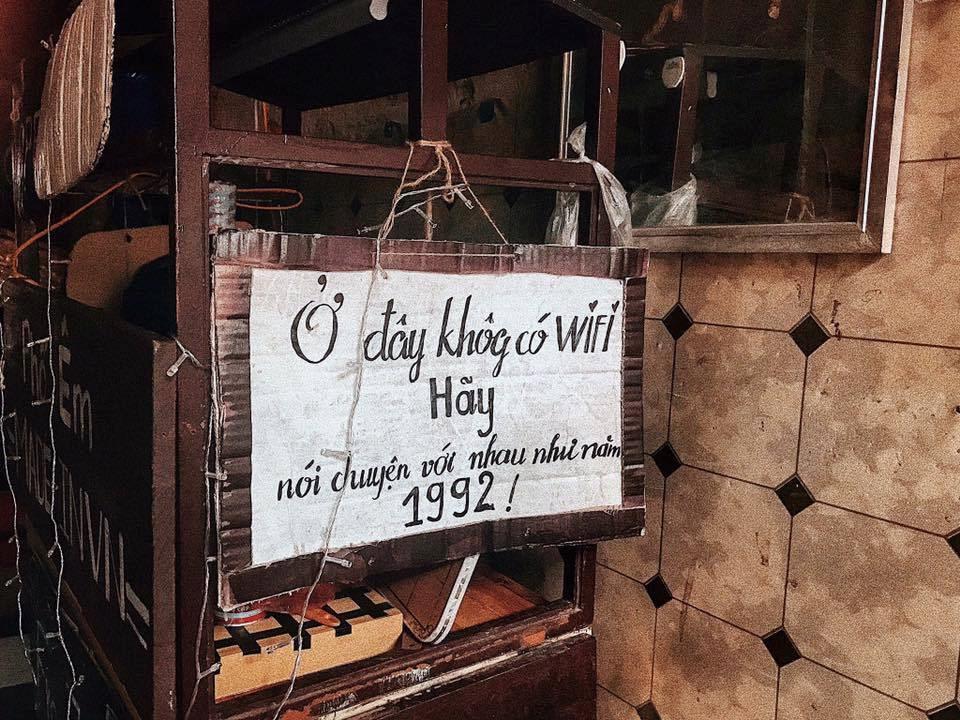 Ở đây khôg có WiFi
Hãy
nói chuyện với nhau như năm
1992!
Êm